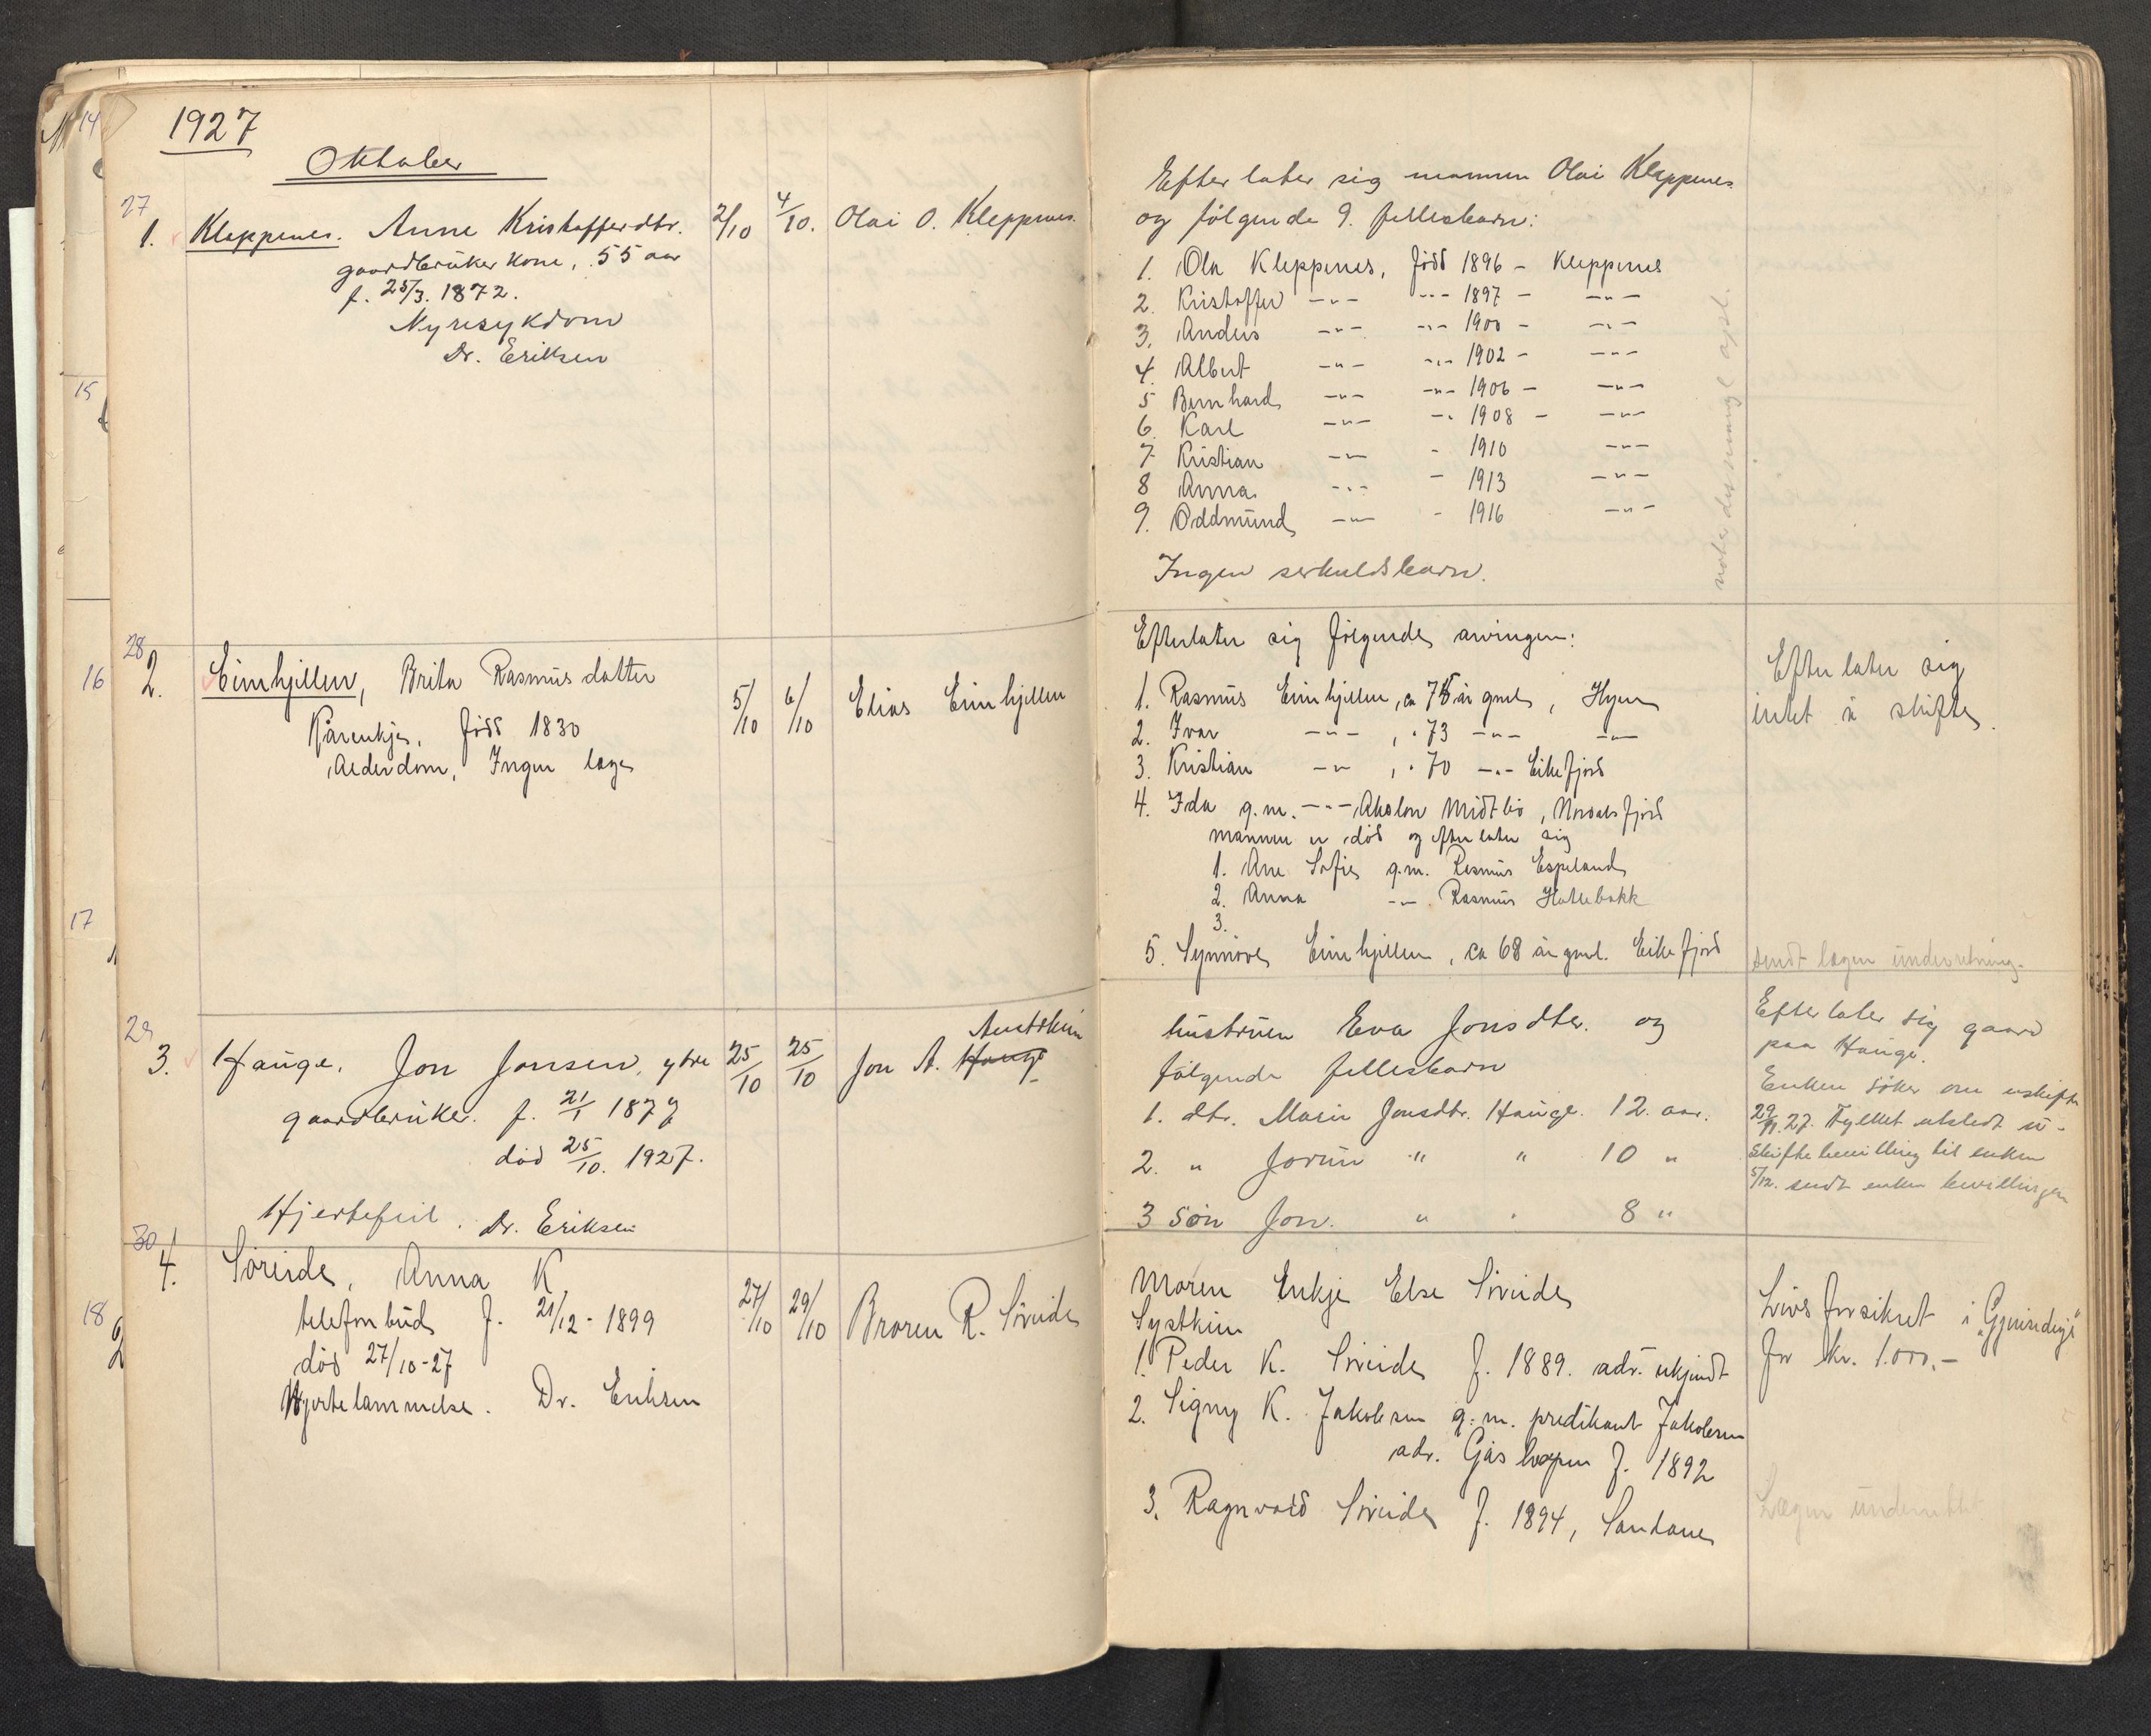 1927
Oktober
27
1. Kleppenes. Anne Kristofferdtr. 2/10 4/10. Olai O. Kleppenes.
gaardbruker kone, 55 aar
f. 25/3. 1872.
Nyresykdom
Dr. Eriksen
28
2. Eimhjellen, Brita Rasmusdatter 5/10 6/10 Elias Eimhjellen
Kårenkje, född 1830
Alderdom, Ingen læge
29
3. Hauge, Jon Jonsen, ytre 25/10 25/10 Jon A. Hauge
gaardbruker. f. 21/1 1877
död 25/10. 1927.
Hjertefeil. Dr. Eriksen
30
4. Söreide, Anna K 27/10 29/10 Broren R. Söreide
telefonbud f. 21/12 - 1899
död 27/10-27
Hjertelammelse. Dr. Eriksen
14
15
16
17
18
Efterlater sig mannen Olai Kleppenes
og følgende 9. fellesbarn:
1. Ola Kleppenes, född 1896 - Kleppenes
2. Kristoffer -"- -"- 1897 - -"-
3. Anders -"- -"- 1900 - -"-
4. Albert -"- -"- 1902 - -"-
5 Bernhard -"- -"- 1906 - -"-
6. Karl -"- -"- 1908 - -"-
7. Kristian -"- - 1910 -"-
8 Anna -"- - 1913 -"-
9. Oddmund -"- - 1916 -"-
Ingen serkuldsbarn.
Efterlater sig følgende arvinger:
1. Rasmus Eimhjellen, ca 75 år gml, Hyen
2. Ivar -"- , " 73 -"- -"-
3. Kristian -"- , " 70 -"- Eikefjord
4. Ida g.m. -"- Absalon Midtbö, Norddalsfjord
mannen er död og efterlater sig
1. Ane Sofie g.m. Rasmus Espeland
2. Anna -"- Rasmus Hatlebakk
3.
5. Synnöve Eimhjellen, ca 68 år gml. Eikefjord
Efterlater sig
intet å skifte.
sendt lægen underretning.
hustruen Eva Jonsdtr. og
følgende fellesbarn
1. dtr. Marie Jonsdtr. Hauge. 12. aar.
2. " Jorun " " 10 "
3 sön Jon. " " 8 "
Efterlater sig gaard
paa Hauge.
Enken söker om uskifte
29/11.27. Fylket utstedt u-
skiftebevilling til enken
5/12. sendt enken bevillingen
Moren Enkje Else Söreide
Systkin
1. Peder K. Söreide f. 1889. adr. ukjendt
2. Signy K. Jakobsen g.m. predikant Jakobsen
adr. f. 1892
3. Ragnvald Söreide f. 1894, Sandane
Livsforsikret i "Gjensidige"
for kr. 1.000.-
Lægen underrettet